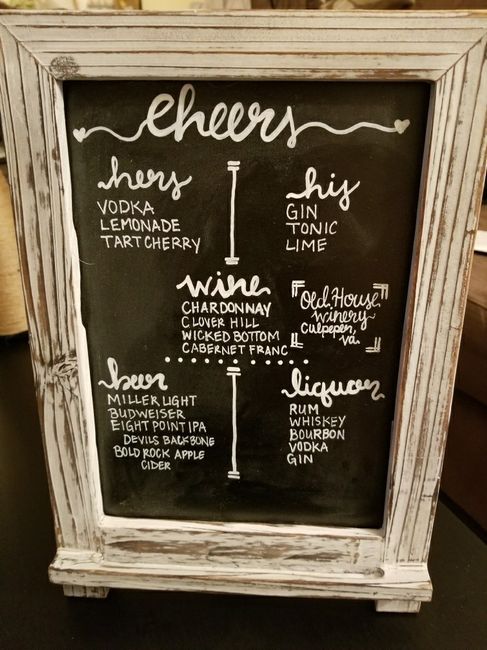 cheers
hers
VODKA
LEMONADE
TART CHERRY
his
GIN
TONIC
LIME
wine
CHARDONNAY
CLOVER HILL
WICKED BOTTOM
CABERNET FRANC
Old House
winery
Culpeper,
va.
beer
MILLER LIGHT
BUDWEISER
EIGHT POINT IPA
DEVILS BACKBONE
BOLD ROCK APPLE
CIDER
liquor
RUM
WHISKEY
BOURBON
VODKA
GIN